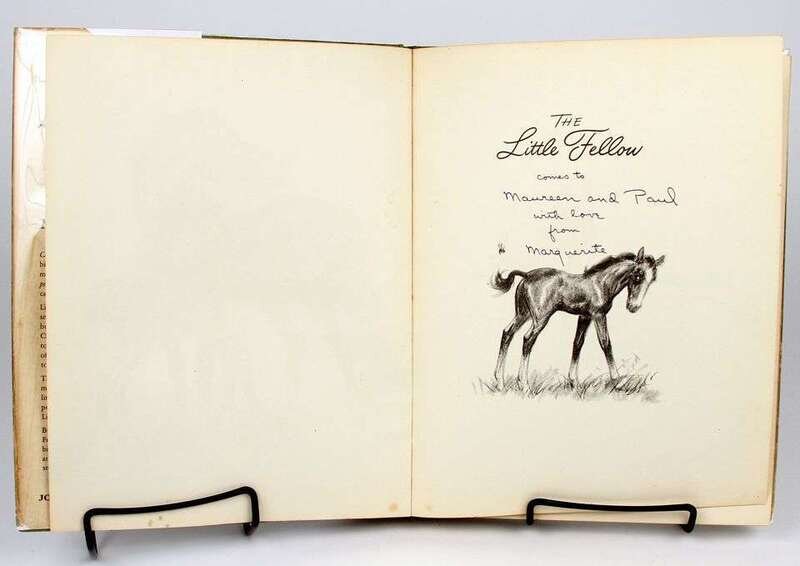 THE
Little Fellow
comes to
Maureen and Paul
with love
from
Marguerite